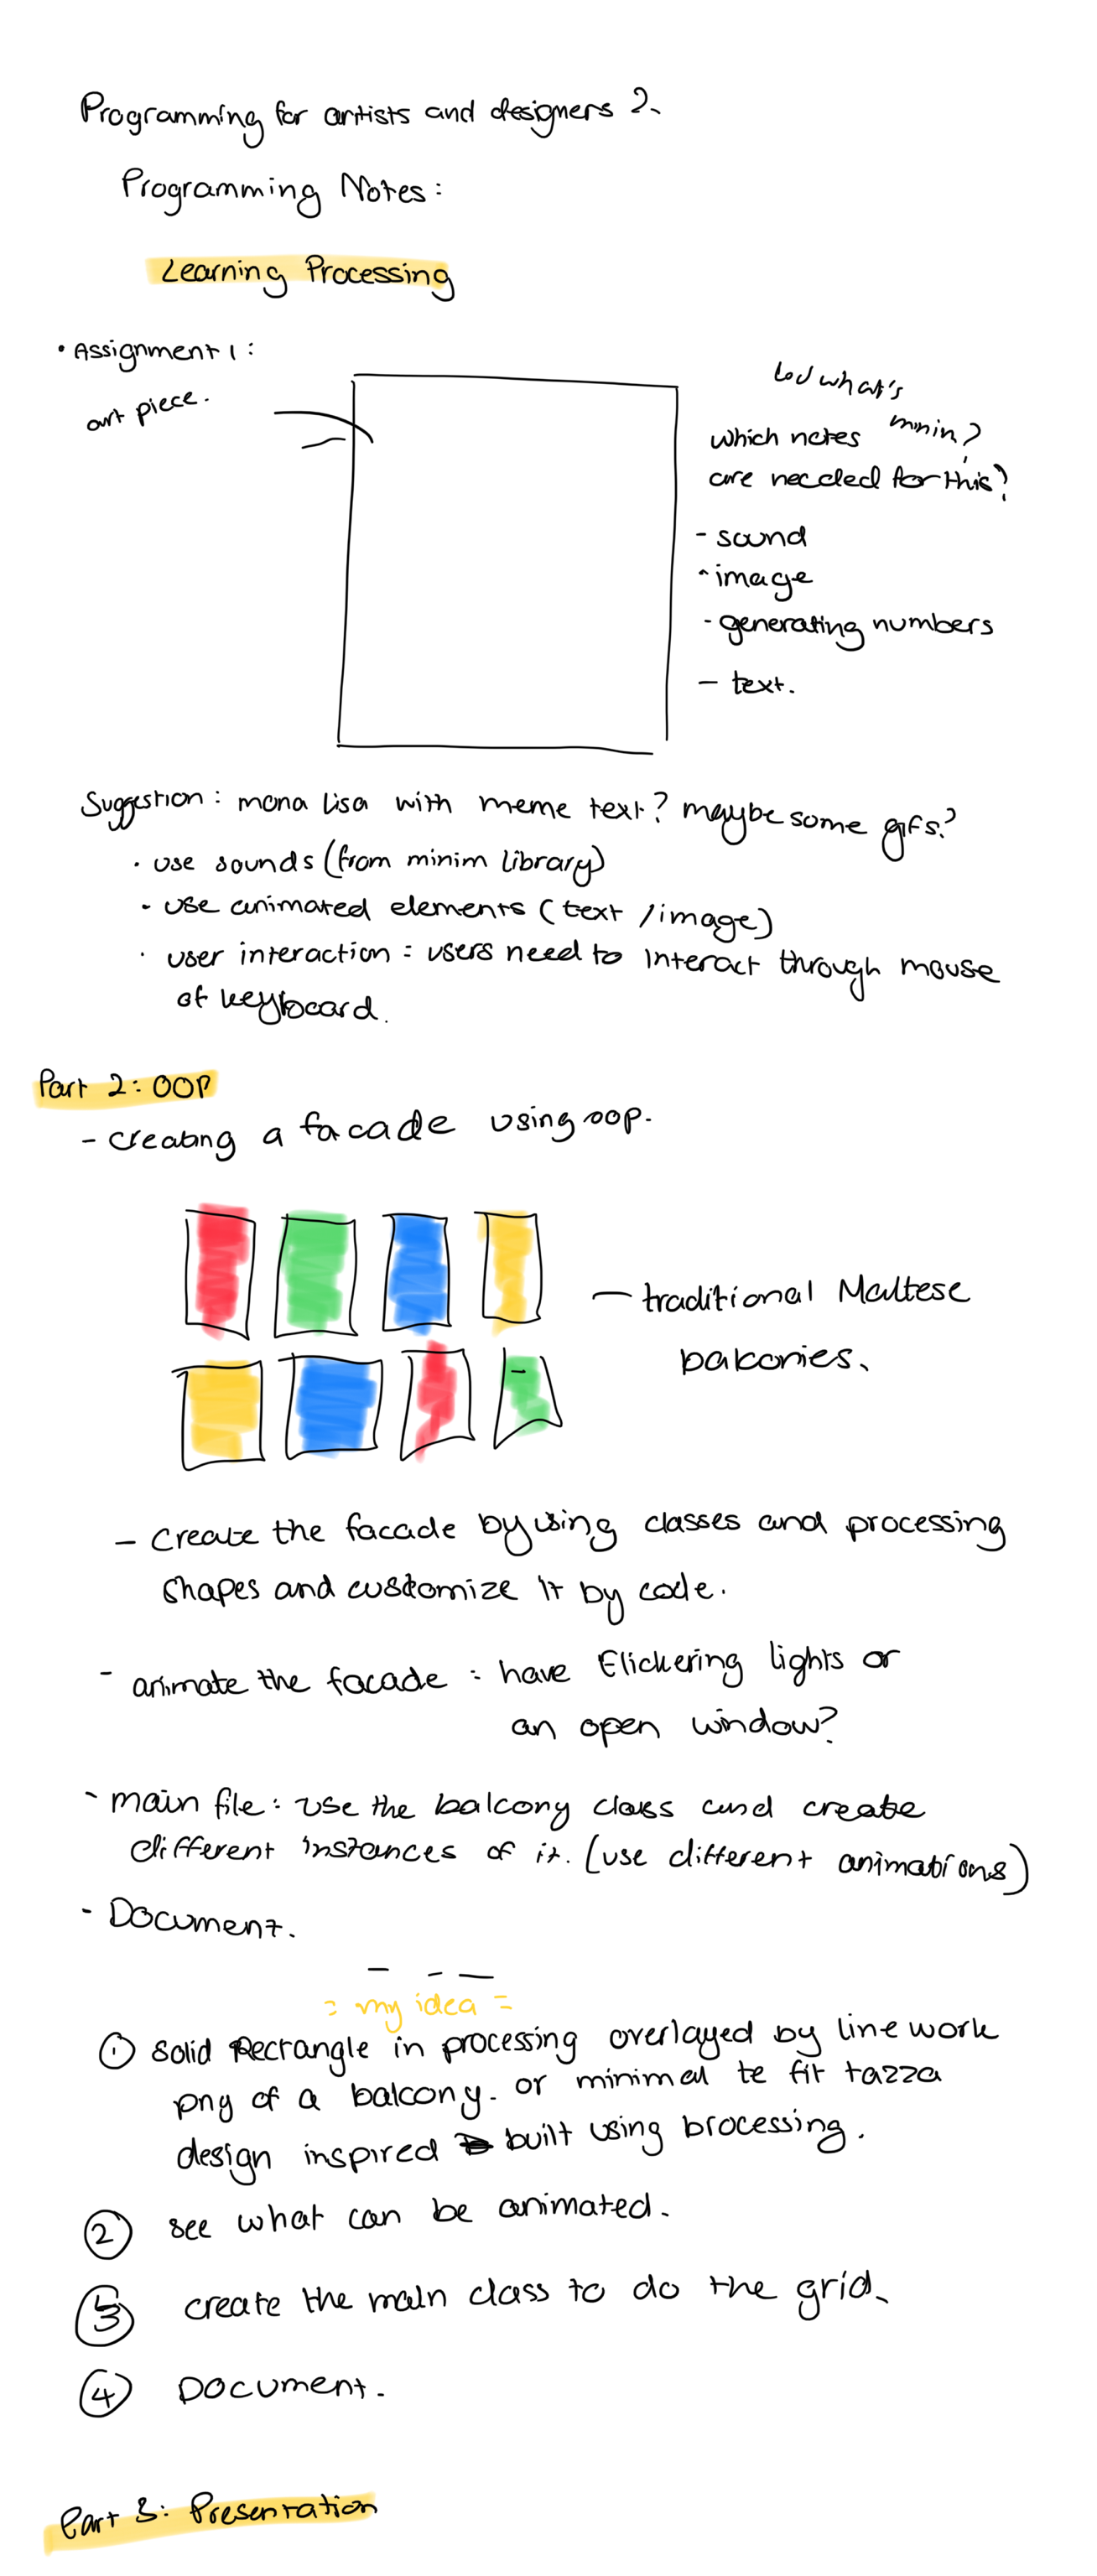 Programming for artists and designers 2.
Programming Notes:
Learning Processing
• Assignment 1:
art piece.
lol what's
minin?
which notes
are needed for this?
- sound
- image
- generating numbers
- text.
Suggestion: mona lisa with meme text? maybe some gifs?
• use sounds (from minim library)
• use animated elements (text / image)
• user interaction = users need to interact through mouse
of keyboard.
Part 2: OOP
- creating a facade using oop.
— traditional Maltese
balconies.
- Create the facade by using classes and processing
shapes and customize it by code.
- animate the facade = have flickering lights or
an open window?
- main file: use the balcony class and create
different instances of it. (use different animations)
- Document.
= my idea =
① solid Rectangle in processing overlayed by line work
png of a balcony. or minimal te fit tazza
design inspired built using brocessing.
② see what can be animated.
③ create the main class to do the grid.
④ Document.
Part 3: Presentation